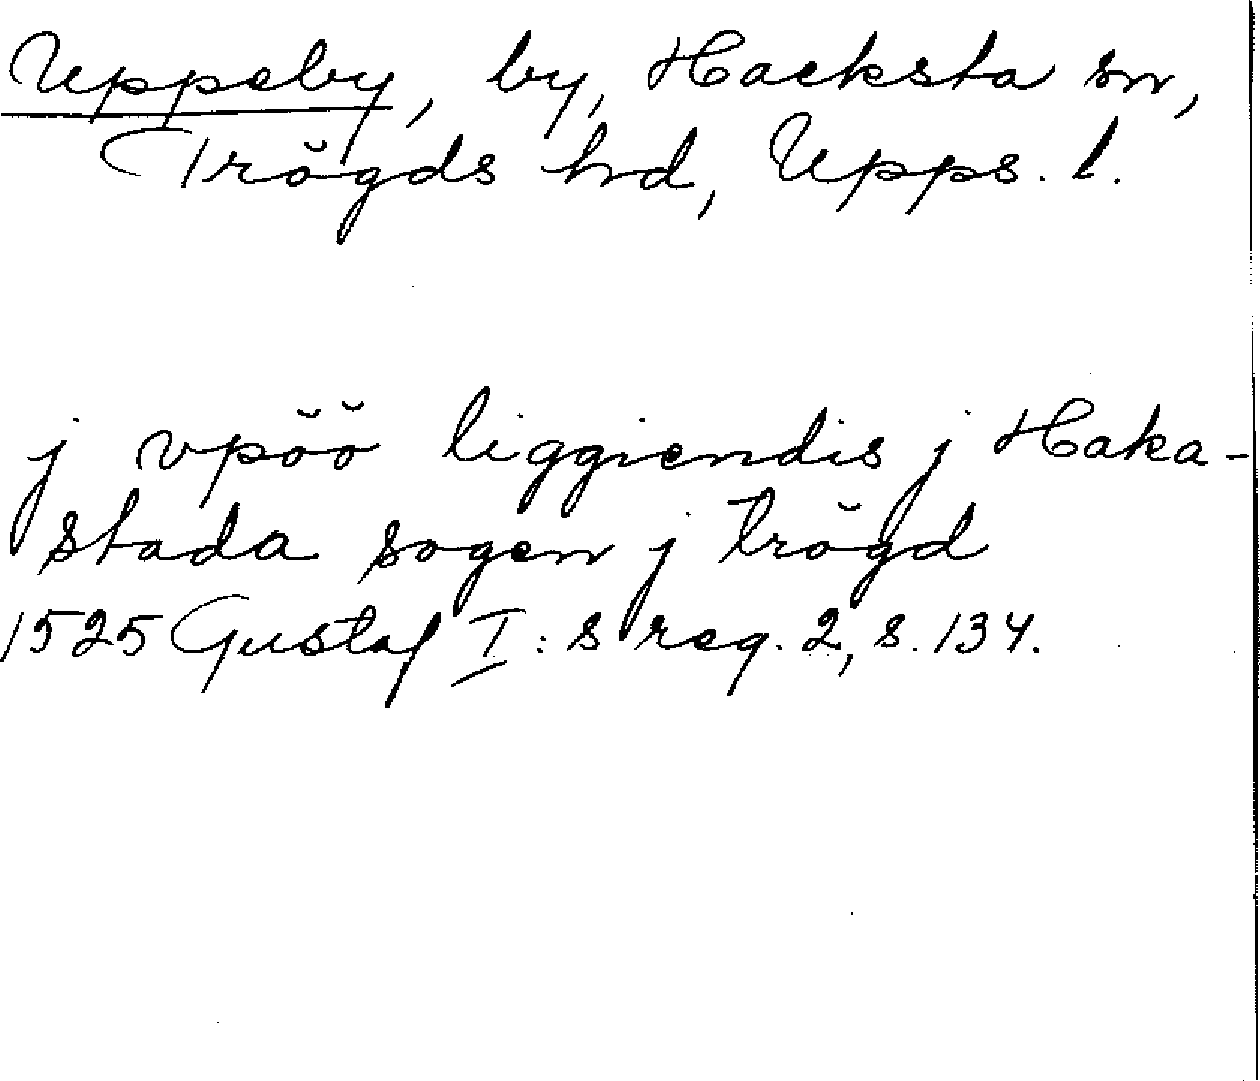 Uppeby, by, Hacksta sn,
Trögds hd, Upps. l.
j vpöö liggiendis j Haka-
stada sogen j trögd
1525 Gustaf I:s reg. 2, s. 134.